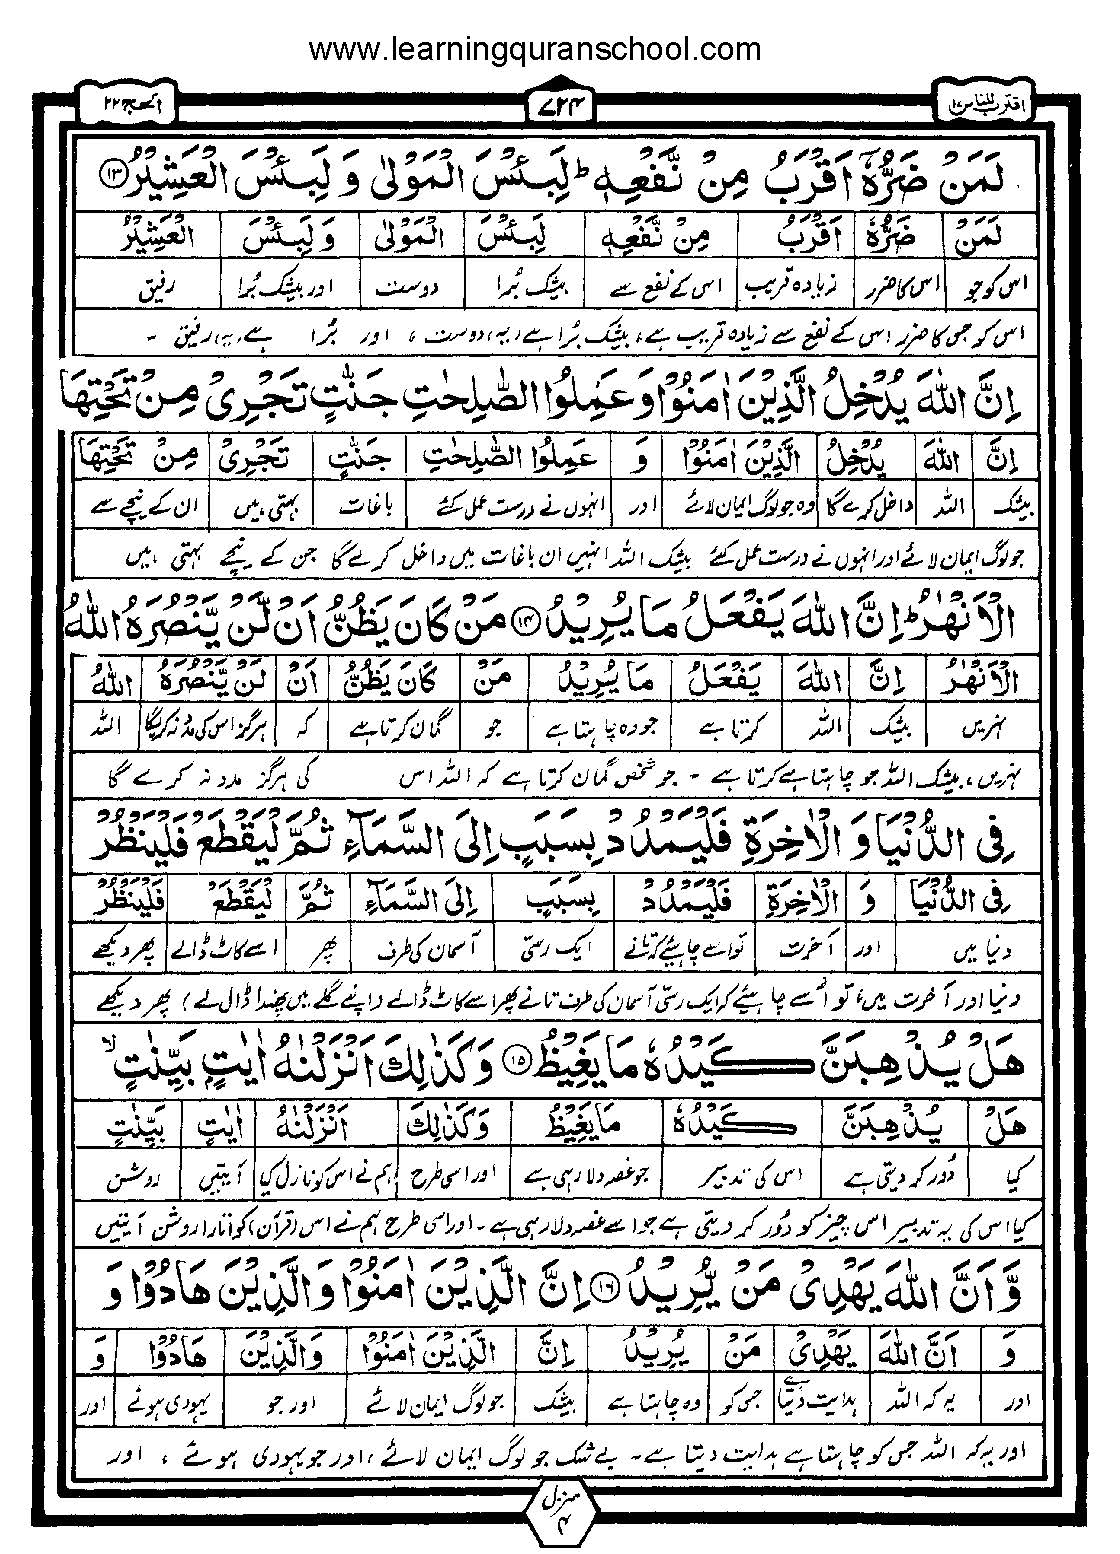 www.learningquranschool.com
اقترب للناس ١٧ ٧٢۴ الحج ٢٢
لَمَنْ ضَرُّهٗۤ اَقْرَبُ مِنْ نَّفْعِهٖ ؕ لَبِئْسَ الْمَوْلٰى وَ لَبِئْسَ الْعَشِيْرُ ۝۱۳
لَمَنْ ضَرُّهٗۤ اَقْرَبُ مِنْ نَّفْعِهٖ لَبِئْسَ الْمَوْلٰى وَ لَبِئْسَ الْعَشِيْرُ
اس کو جو اس کا ضرر زیادہ قریب اس کے نفع سے بیشک بُرا دوست اور بیشک بُرا رفیق
اس کو جس کا ضرر اس کے نفع سے زیادہ قریب ہے، بیشک بُرا ہے (یہ) دوست ، اور بُرا ہے (یہ) رفیق -
اِنَّ اللّٰهَ يُدْخِلُ الَّذِيْنَ اٰمَنُوْا وَ عَمِلُوا الصّٰلِحٰتِ جَنّٰتٍ تَجْرِىْ مِنْ تَحْتِهَا
اِنَّ اللّٰهَ يُدْخِلُ الَّذِيْنَ اٰمَنُوْا وَ عَمِلُوا الصّٰلِحٰتِ جَنّٰتٍ تَجْرِىْ مِنْ تَحْتِهَا
بیشک اللہ داخل کرے گا وہ جو لوگ ایمان لائے اور انہوں نے درست عمل کئے باغات بہتی ہیں ان کے نیچے سے
جو لوگ ایمان لائے اور انہوں نے درست عمل کئے بیشک اللہ انہیں ان باغات میں داخل کرے گا جن کے نیچے بہتی ہیں
الْاَنْهٰرُ ؕ اِنَّ اللّٰهَ يَفْعَلُ مَا يُرِيْدُ ۝۱۴ مَنْ كَانَ يَظُنُّ اَنْ لَّنْ يَّنْصُرَهُ اللّٰهُ
الْاَنْهٰرُ اِنَّ اللّٰهَ يَفْعَلُ مَا يُرِيْدُ مَنْ كَانَ يَظُنُّ اَنْ لَّنْ يَّنْصُرَهُ اللّٰهُ
نہریں بیشک اللہ کرتا ہے جو وہ چاہتا ہے جو گمان کرتا ہے کہ ہرگز اس کی مدد نہ کریگا اللہ
نہریں ، بیشک اللہ جو چاہتا ہے کرتا ہے - جو شخص گمان کرتا ہے کہ اللہ اس کی ہرگز مدد نہ کرے گا
فِى الدُّنْيَا وَ الْاٰخِرَةِ فَلْيَمْدُدْ بِسَبَبٍ اِلَى السَّمَآءِ ثُمَّ لْيَقْطَعْ فَلْيَنْظُرْ
فِى الدُّنْيَا وَ الْاٰخِرَةِ فَلْيَمْدُدْ بِسَبَبٍ اِلَى السَّمَآءِ ثُمَّ لْيَقْطَعْ فَلْيَنْظُرْ
دنیا میں اور آخرت تو اسے چاہیئے کہ تانے ایک رسّی آسمان کی طرف پھر اسے کاٹ ڈالے پھر دیکھے
دنیا اور آخرت میں، تو اُسے چاہیئے کہ ایک رسّی آسمان کی طرف تانے پھر اسے کاٹ ڈالے (اپنے گلے میں پھندا ڈال لے) پھر دیکھے
هَلْ يُذْهِبَنَّ كَيْدُهٗ مَا يَغِيْظُ ۝۱۵ وَ كَذٰلِكَ اَنْزَلْنٰهُ اٰيٰتٍۭ بَيِّنٰتٍ ۙ
هَلْ يُذْهِبَنَّ كَيْدُهٗ مَا يَغِيْظُ وَكَذٰلِكَ اَنْزَلْنٰهُ اٰيٰتٍ بَيِّنٰتٍ
کیا دُور کر دیتی ہے اس کی تدبیر جو غصہ دلا رہی ہے اور اسی طرح ہم نے اس کو نازل کیا آیتیں روشن
کیا اس کی یہ تدبیر اس چیز کو دُور کر دیتی ہے جو اسے غصہ دلا رہی ہے - اور اسی طرح ہم نے اس (قرآن) کو اتارا روشن آیتیں
وَّ اَنَّ اللّٰهَ يَهْدِىْ مَنْ يُّرِيْدُ ۝۱۶ اِنَّ الَّذِيْنَ اٰمَنُوْا وَالَّذِيْنَ هَادُوْا وَ
وَ اَنَّ اللّٰهَ يَهْدِىْ مَنْ يُّرِيْدُ اِنَّ الَّذِيْنَ اٰمَنُوْا وَالَّذِيْنَ هَادُوْا وَ
اور یہ کہ اللہ ہدایت دیتا ہے جس کو وہ چاہتا ہے بیشک جو لوگ ایمان لائے اور جو یہودی ہوئے اور
اور یہ کہ اللہ جس کو چاہتا ہے ہدایت دیتا ہے - بے شک جو لوگ ایمان لائے ، اور جو یہودی ہوئے ، اور
منزل ۴